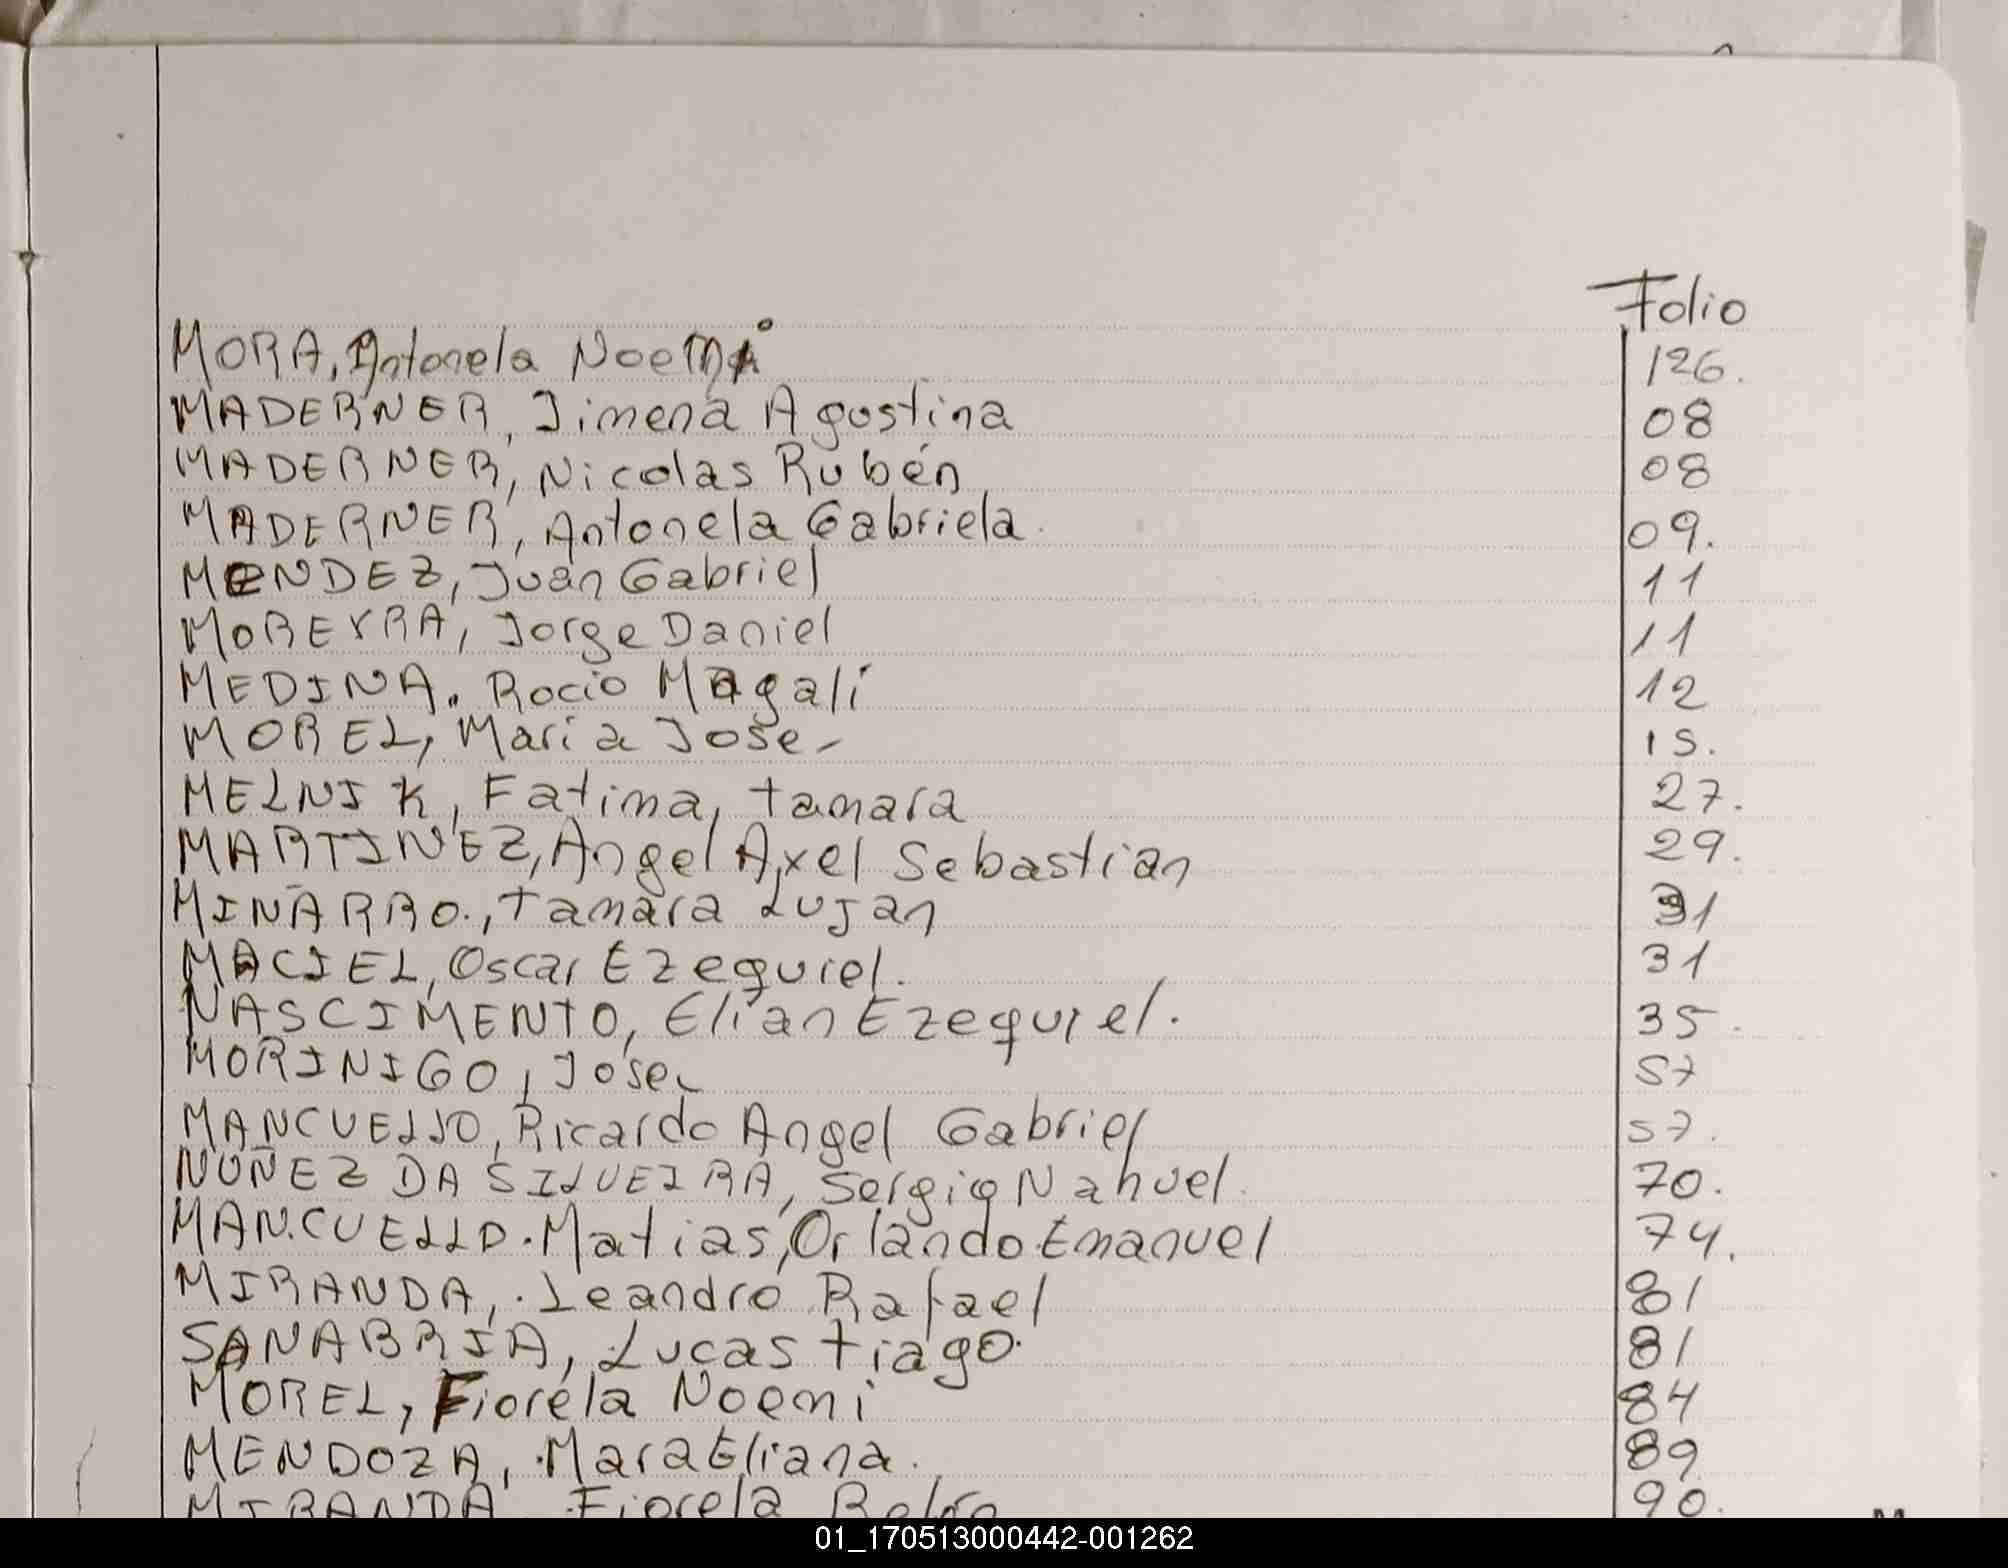 Folio
MORA, Antonela Noemi 126.
MADERNER, Jimena Agustina 08
MADERNER, Nicolas Rubén 08
MADERNER, Antonela Gabriela. 09.
MENDEZ, Juan Gabriel 11
MOREYRA, Jorge Daniel 11
MEDINA. Rocio Magali 12
MOREL, Maria Jose 15.
MELNIK, Fatima, tamara 27.
MARTINEZ, Angel Axel Sebastian 29.
MIÑARRO., tamara Lujan 31
MACIEL, Oscar Ezequiel. 31
NASCIMENTO, Elian Ezequiel. 35.
MORINIGO, Jose 57
MANCUELLO, Ricardo Angel Gabriel 57.
NUÑEZ DA SILVEIRA, Sergio Nahuel. 70.
MAN.CUELLO. Matias, Orlando Emanuel 74.
MIRANDA, . Leandro Rafael 81
SANABRIA, Lucas tiago. 81
MOREL, Fiorela Noemi 84
MENDOZA, . Mara Eliana. 89
MIRANDA Fiorela 90.
01_170513000442-001262